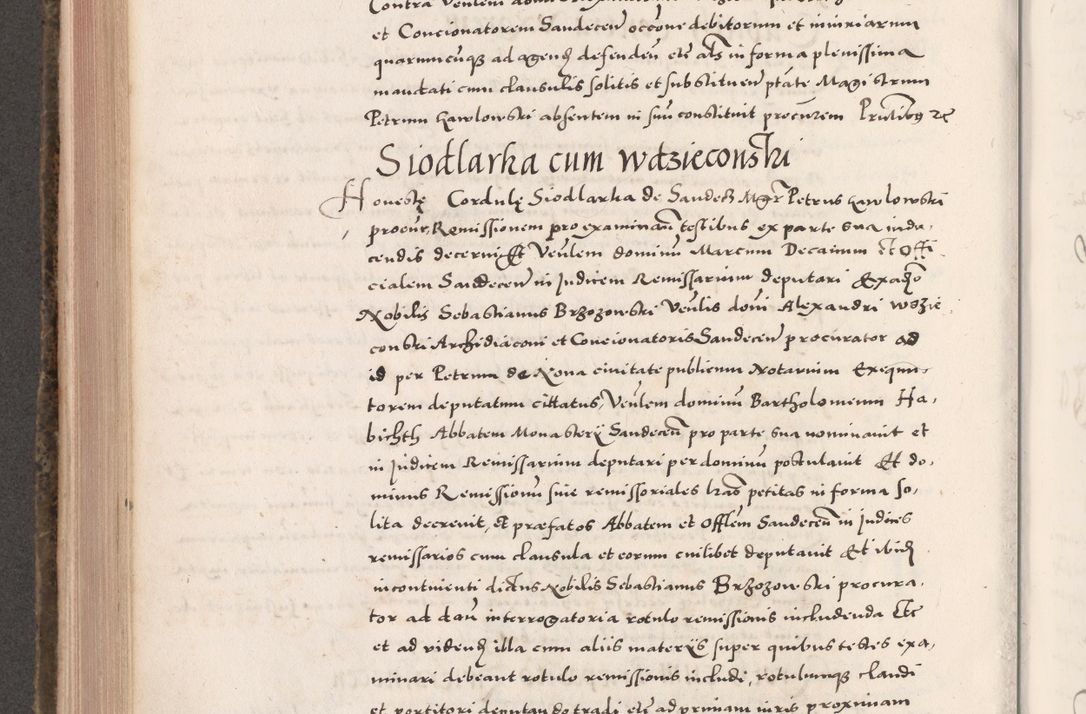 et Concionatorem Sandeceñ occone debitorum et iniuriarum
quarumcunque ad agend defendeñ etc als in forma plenissima
mandati cum clausulis solitis et substitueñ ptate Magistrum
Petrum Gawlowski absentem in suũ constituit procurem
Siodlarka cum Wdzieconski
Honestę Cordulę Siodlarka de Sandecz Mgr Petrus Gawlowski
procur Remissionem pro examinañ testibus ex parte sua indu,
cendis decerni Et Venlem dominũ Marcum Decanum Et Offi
cialem Sandeceñ in Judicem Remissarium deputari Ex aduo
Nobilis Sebastianus Brzozowski Venlis dõni Alexandri Wdzie
conski Archidiaconi et Concionatoris Sandeceñ procurator ad
id per Petrum de Nona ciuitate publicum Notarium Exequu-
torem deputatum cittatus, Venlem dominũ Bartholomeum Ha,
bichth Abbatem Monastery Sandeceñ pro parte sua nominauit et
in Judicem Remissarium deputari per dominũ postulauit Et do,
minus Remissionũ siue remissoriales lras petitas in forma so,
lita decreuit, et præfatos Abbatem et Offlem Sandeceñ in Judices
remissarios cum clausula et eorum cuilibet deputauit Et ibid
incontinenti dictus Nobilis Sebastianus Brzozowski procura,
tor ad dañ interrogatoria rotulo remissionis includenda Etc
et ad videnđ illa cum aliis materys super quibus testes exa,
minari debeant rotulo remissionis includi, rotulumque claudi
et portitori deputando tradi etc ad primam iuris proximam